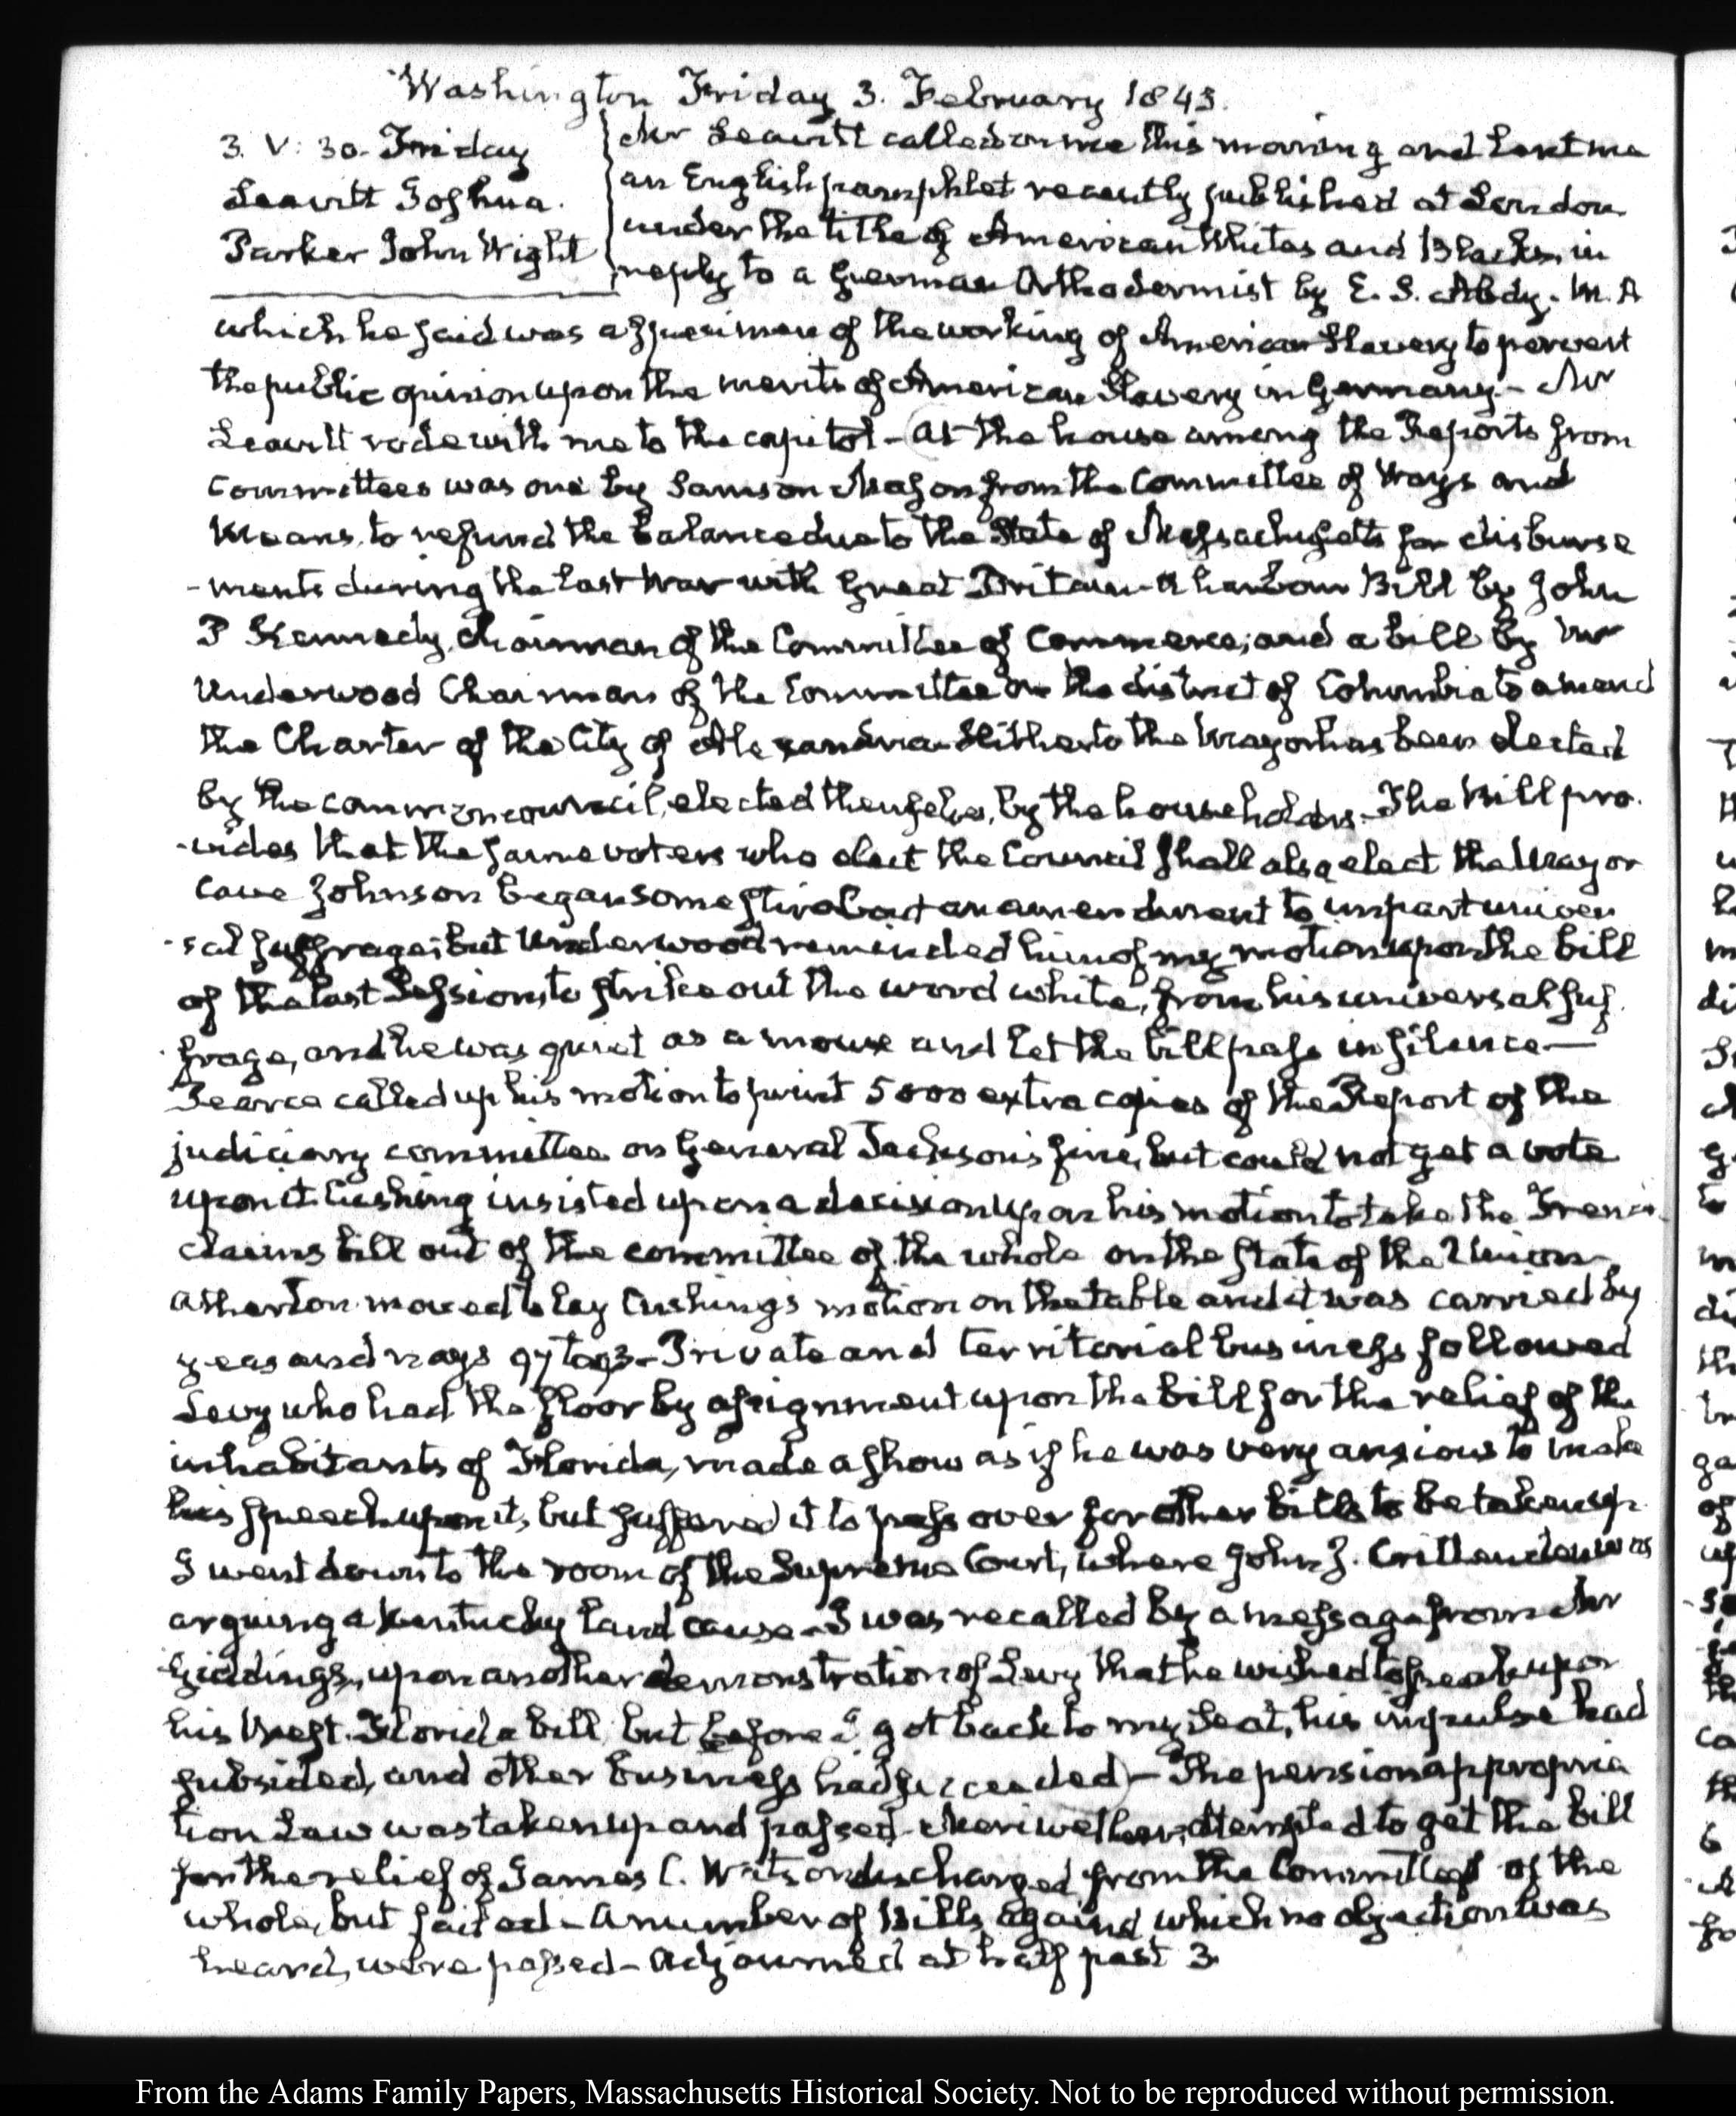 Washington Friday 3. February 1843.
3. V: 30. Friday
Leavitt Joshua.
Parker John Wright
Mr Leavitt called on me this morning and lent me
an English pamphlet recently published at London
under the title of American Whites and Blacks, in
reply to a German Orthodermist by E. S. Abdy. M. A
which he said was a specimen of the working of American Slavery to pervert
the public opinion upon the merits of American Slavery in Germany— Mr
Leavitt rode with me to the capitol— At the house among the Reports from
Committees was one by Samson Mason from the Committee of Ways and
Means, to refund the balance due to the State of Massachusetts for disburse
-ments during the last War with Great Britain— A harbour Bill by John
P Kennedy, Chairman of the Committee of Commerce; and a bill by Mr
Underwood Chairman of the Committee on the district of Columbia to amend
the Charter of the City of Alexandria— Hitherto the Mayor has been elected
by the common council, elected themselves, by the householders— The Bill pro-
-vides that the same voters who elect the Council shall also elect the Mayor
Cave Johnson began some stir about an amendment to impart univer
-sal suffrage; but Underwood reminded him of my motion upon the bill
of the last Session, to strike out the word white, from his universal suf-
-frage, and he was quiet as a mouse and let the bill pass in silence—
Pearce called up his motion to print 5000 extra copies of the Report of the
judiciary committee on General Jackson's fine, but could not get a vote
upon it. Cushing insisted upon a decision upon his motion to take the French
claims bill out of the committee of the whole on the State of the Union—
Atherton moved to lay Cushing's motion on the table and it was carried by
yeas and nays 97 to 93— Private and territorial business followed
Levy who had the floor by assignment upon the bill for the relief of the
inhabitants of Florida, made a show as if he was very anxious to make
his speech upon it, but suffered it to pass over for other bills to be taken up.
I went down to the room of the Supreme Court, where John J. Crittenden was
arguing a Kentucky land cause— I was recalled by a message from Mr
Giddings, upon another demonstration of Levy that he wished to speak upon
his West Florida bill, but before I got back to my Seat, his impulse had
subsided, and other business had succeeded— The pension appropria
tion Law was taken up and passed— Meriwether attempted to get the bill
for the relief of James C. Watson discharged from the Committee of the
whole, but failed— A number of Bills, against which no objection was
heard, were passed— Adjourned at half past 3.
From the Adams Family Papers, Massachusetts Historical Society. Not to be reproduced without permission.